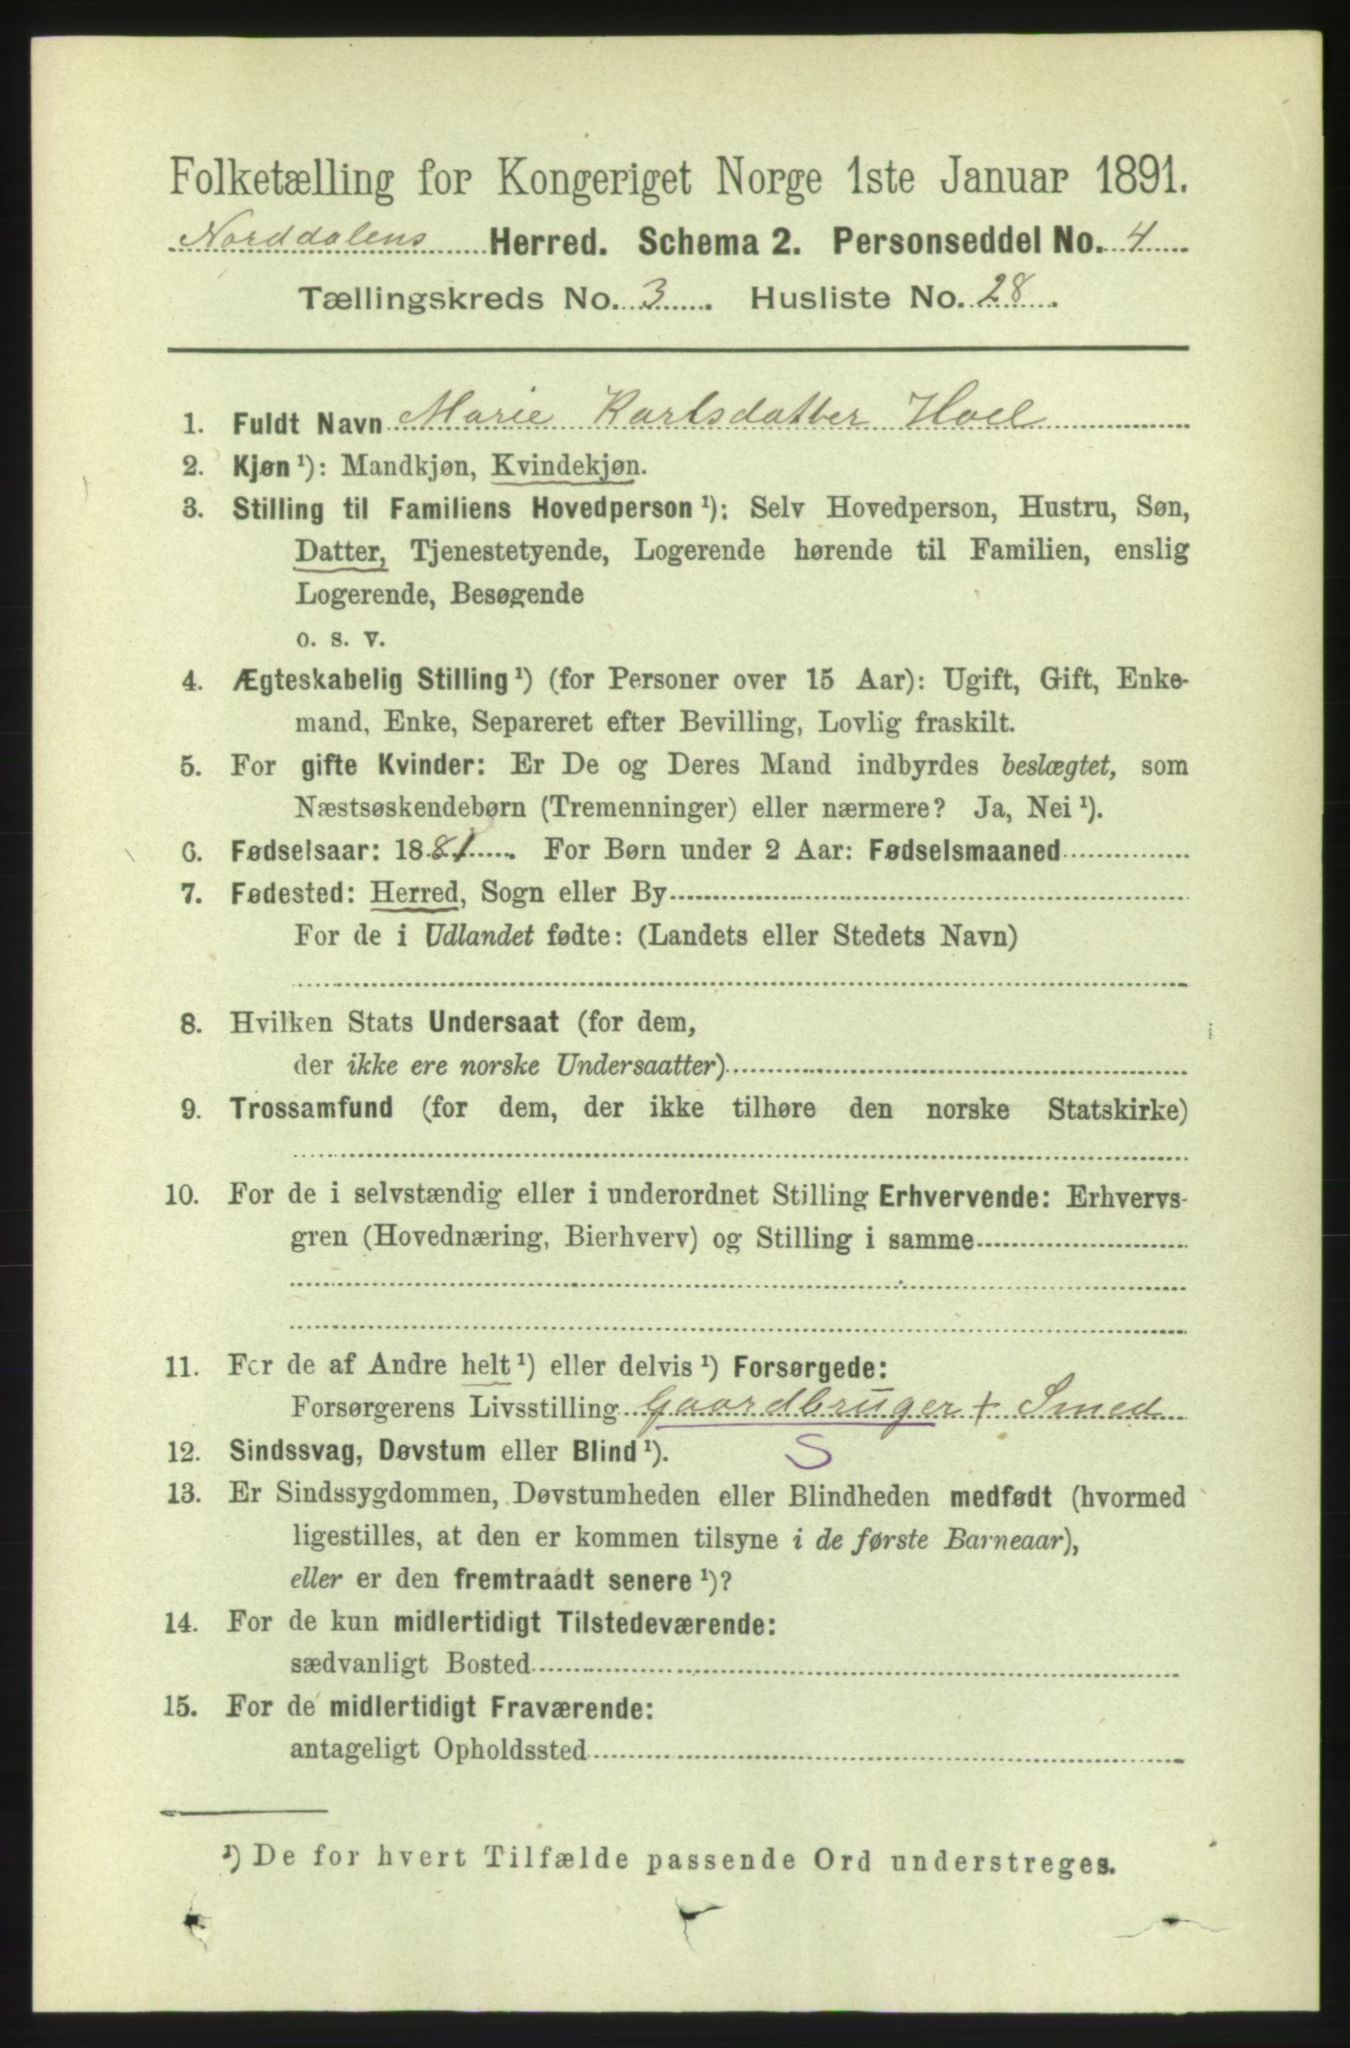 Folketælling for Kongeriget Norge 1ste Januar 1891.
Norddalens Herred. Schema 2. Personseddel No. 4
Tællingskreds No. 3. Husliste No. 28.
1. Fuldt Navn Marie Karlsdatter Hoel
2. Kjøn¹): Mandkjøn, Kvindekjøn.
3. Stilling til Familiens Hovedperson¹): Selv Hovedperson, Hustru, Søn,
Datter, Tjenestetyende, Logerende hørende til Familien, enslig
Logerende, Besøgende
o. s. v.
4. Ægteskabelig Stilling¹) (for Personer over 15 Aar): Ugift, Gift, Enke-
mand, Enke, Separeret efter Bevilling, Lovlig fraskilt.
5. For gifte Kvinder: Er De og Deres Mand indbyrdes beslægtet, som
Næstsøskendebørn (Tremenninger) eller nærmere? Ja, Nei¹).
6. Fødselsaar: 1881. For Børn under 2 Aar: Fødselsmaaned
7. Fødested: Herred, Sogn eller By
For de i Udlandet fødte: (Landets eller Stedets Navn)
8. Hvilken Stats Undersaat (for dem,
der ikke ere norske Undersaatter)
9. Trossamfund (for dem, der ikke tilhøre den norske Statskirke)
10. For de i selvstændig eller i underordnet Stilling Erhvervende: Erhvervs-
gren (Hovednæring, Bierhverv) og Stilling i samme
11. For de af Andre helt¹) eller delvis¹) Forsørgede:
Forsørgerens Livsstilling Gaardbruger + Smed
12. Sindssvag, Døvstum eller Blind¹). S
13. Er Sindssygdommen, Døvstumheden eller Blindheden medfødt (hvormed
ligestilles, at den er kommen tilsyne i de første Barneaar),
eller er den fremtraadt senere¹)?
14. For de kun midlertidigt Tilstedeværende:
sædvanligt Bosted
15. For de midlertidigt Fraværende:
antageligt Opholdssted
¹) De for hvert Tilfælde passende Ord understreges.